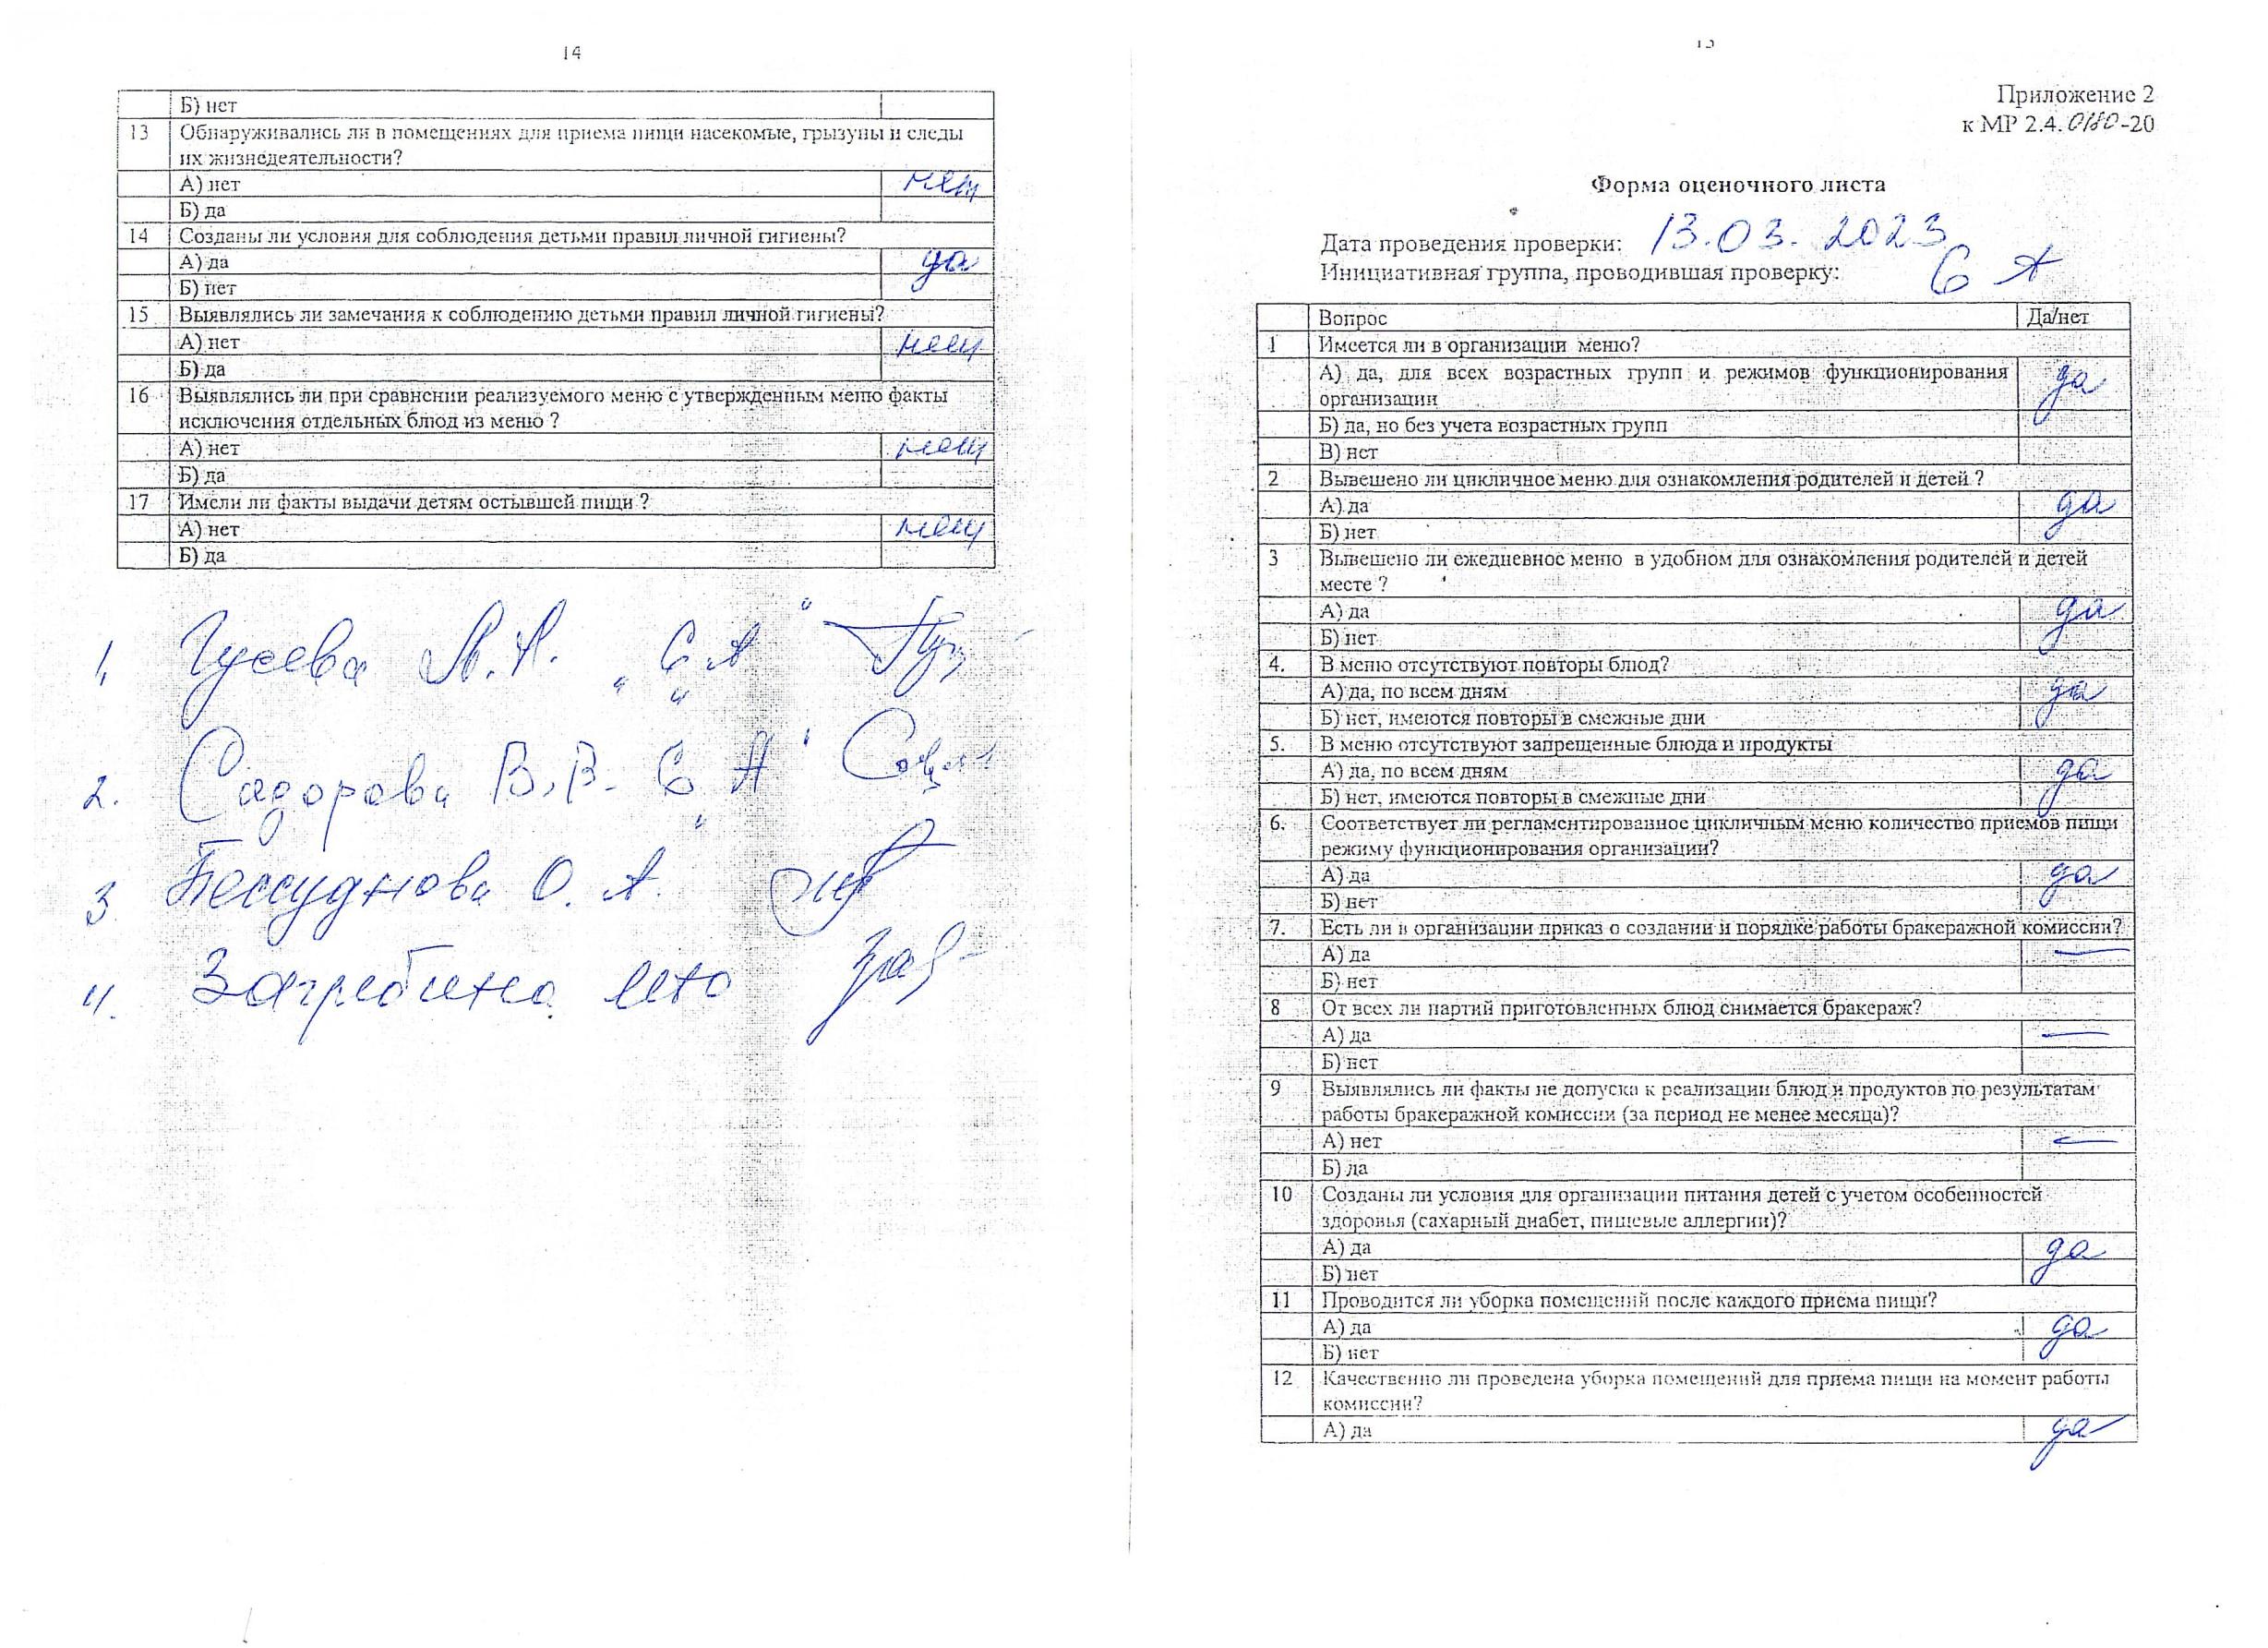 14
Б) нет
13 Обнаруживались ли в помещениях для приема пищи насекомые, грызуны и следы
их жизнедеятельности?
А) нет нет
Б) да
14 Созданы ли условия для соблюдения детьми правил личной гигиены?
А) да да
Б) нет
15 Выявлялись ли замечания к соблюдению детьми правил личной гигиены?
А) нет нет
Б) да
16 Выявлялись ли при сравнении реализуемого меню с утвержденным меню факты
исключения отдельных блюд из меню ?
А) нет нет
Б) да
17 Имели ли факты выдачи детям остывшей пищи ?
А) нет нет
Б) да
1. Гусева А.А. "6 А"
2. В.В. 6 "А"
3. Бессуднова О. А.
4. Загребина
Приложение 2
к МР 2.4.0180-20
Форма оценочного листа
Дата проведения проверки: 13.03.2023
Инициативная группа, проводившая проверку: 6 А
Вопрос Да/нет
1 Имеется ли в организации меню?
А) да, для всех возрастных групп и режимов функционирования
организации да
Б) да, но без учета возрастных групп
В) нет
2 Вывешено ли цикличное меню для ознакомления родителей и детей ?
А) да да
Б) нет
3 Вывешено ли ежедневное меню в удобном для ознакомления родителей и детей
месте ?
А) да да
Б) нет
4. В меню отсутствуют повторы блюд?
А) да, по всем дням да
Б) нет, имеются повторы в смежные дни
5. В меню отсутствуют запрещенные блюда и продукты
А) да, по всем дням да
Б) нет, имеются повторы в смежные дни
6. Соответствует ли регламентированное цикличным меню количество приемов пищи
режиму функционирования организации?
А) да да
Б) нет
7. Есть ли в организации приказ о создании и порядке работы бракеражной комиссии?
А) да —
Б) нет
8 От всех ли партий приготовленных блюд снимается бракераж?
А) да —
Б) нет
9 Выявлялись ли факты не допуска к реализации блюд и продуктов по результатам
работы бракеражной комиссии (за период не менее месяца)?
А) нет —
Б) да
10 Созданы ли условия для организации питания детей с учетом особенностей
здоровья (сахарный диабет, пищевые аллергии)?
А) да да
Б) нет
11 Проводится ли уборка помещений после каждого приема пищи?
А) да да
Б) нет
12 Качественно ли проведена уборка помещений для приема пищи на момент работы
комиссии?
А) да да